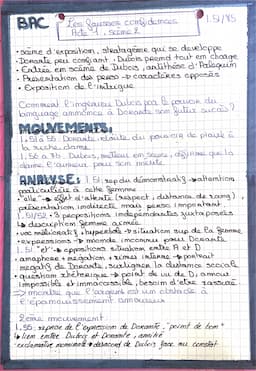 BAC
Les fausses confidences
Acte 1, scène 2
l.51/75
• scène d'exposition, stratagème qui se développe
• Dorante peu confiant, Dubois prend tout en charge
• Entrée en scène de Dubois, antithèse d'Arlequin
• Présentation des perso → caractères opposés
• Exposition de l'intrigue
Comment l'ingénieux Dubois par le pouvoir du
langage annonce à Dorante son futur succès ?
MOUVEMENTS:
l.51 à 55: Dorante doute du pouvoir de plaire à
la riche dame
l.56 à 75: Dubois, metteur en scène, affirme que la
dame l'aimera pour son mérite
ANALYSE: l.51: rep du démonstratif → attention
particulière à cette femme
• "elle" → effet d'attente (respect, distance, rang)
présentation indirecte mais perso important
l.51/52 • 3 propositions indépendantes juxtaposées
↳ description femme aimée
• voc mélioratif, hyperbole → situation sup de la femme
• expressions → monde inconnu pour Dorante
l.51 "et" → oppositions situation entre A et D
• anaphore + négation + rimes interne → portrait
négatif de Dorante, souligner la distance sociale
• question rhétorique → point de vue de D, amour
impossible et innaccessible, besoin d'être rassuré
=> montre que l'argent est un obstacle à
l'épanouissement amoureux
2ème mouvement
l.56: reprise de l'expression de Dorante, "point de bien"
↳ lien entre Dubois et Dorante, amitié
• exclamative nominale → désaccord de Dubois face au constat